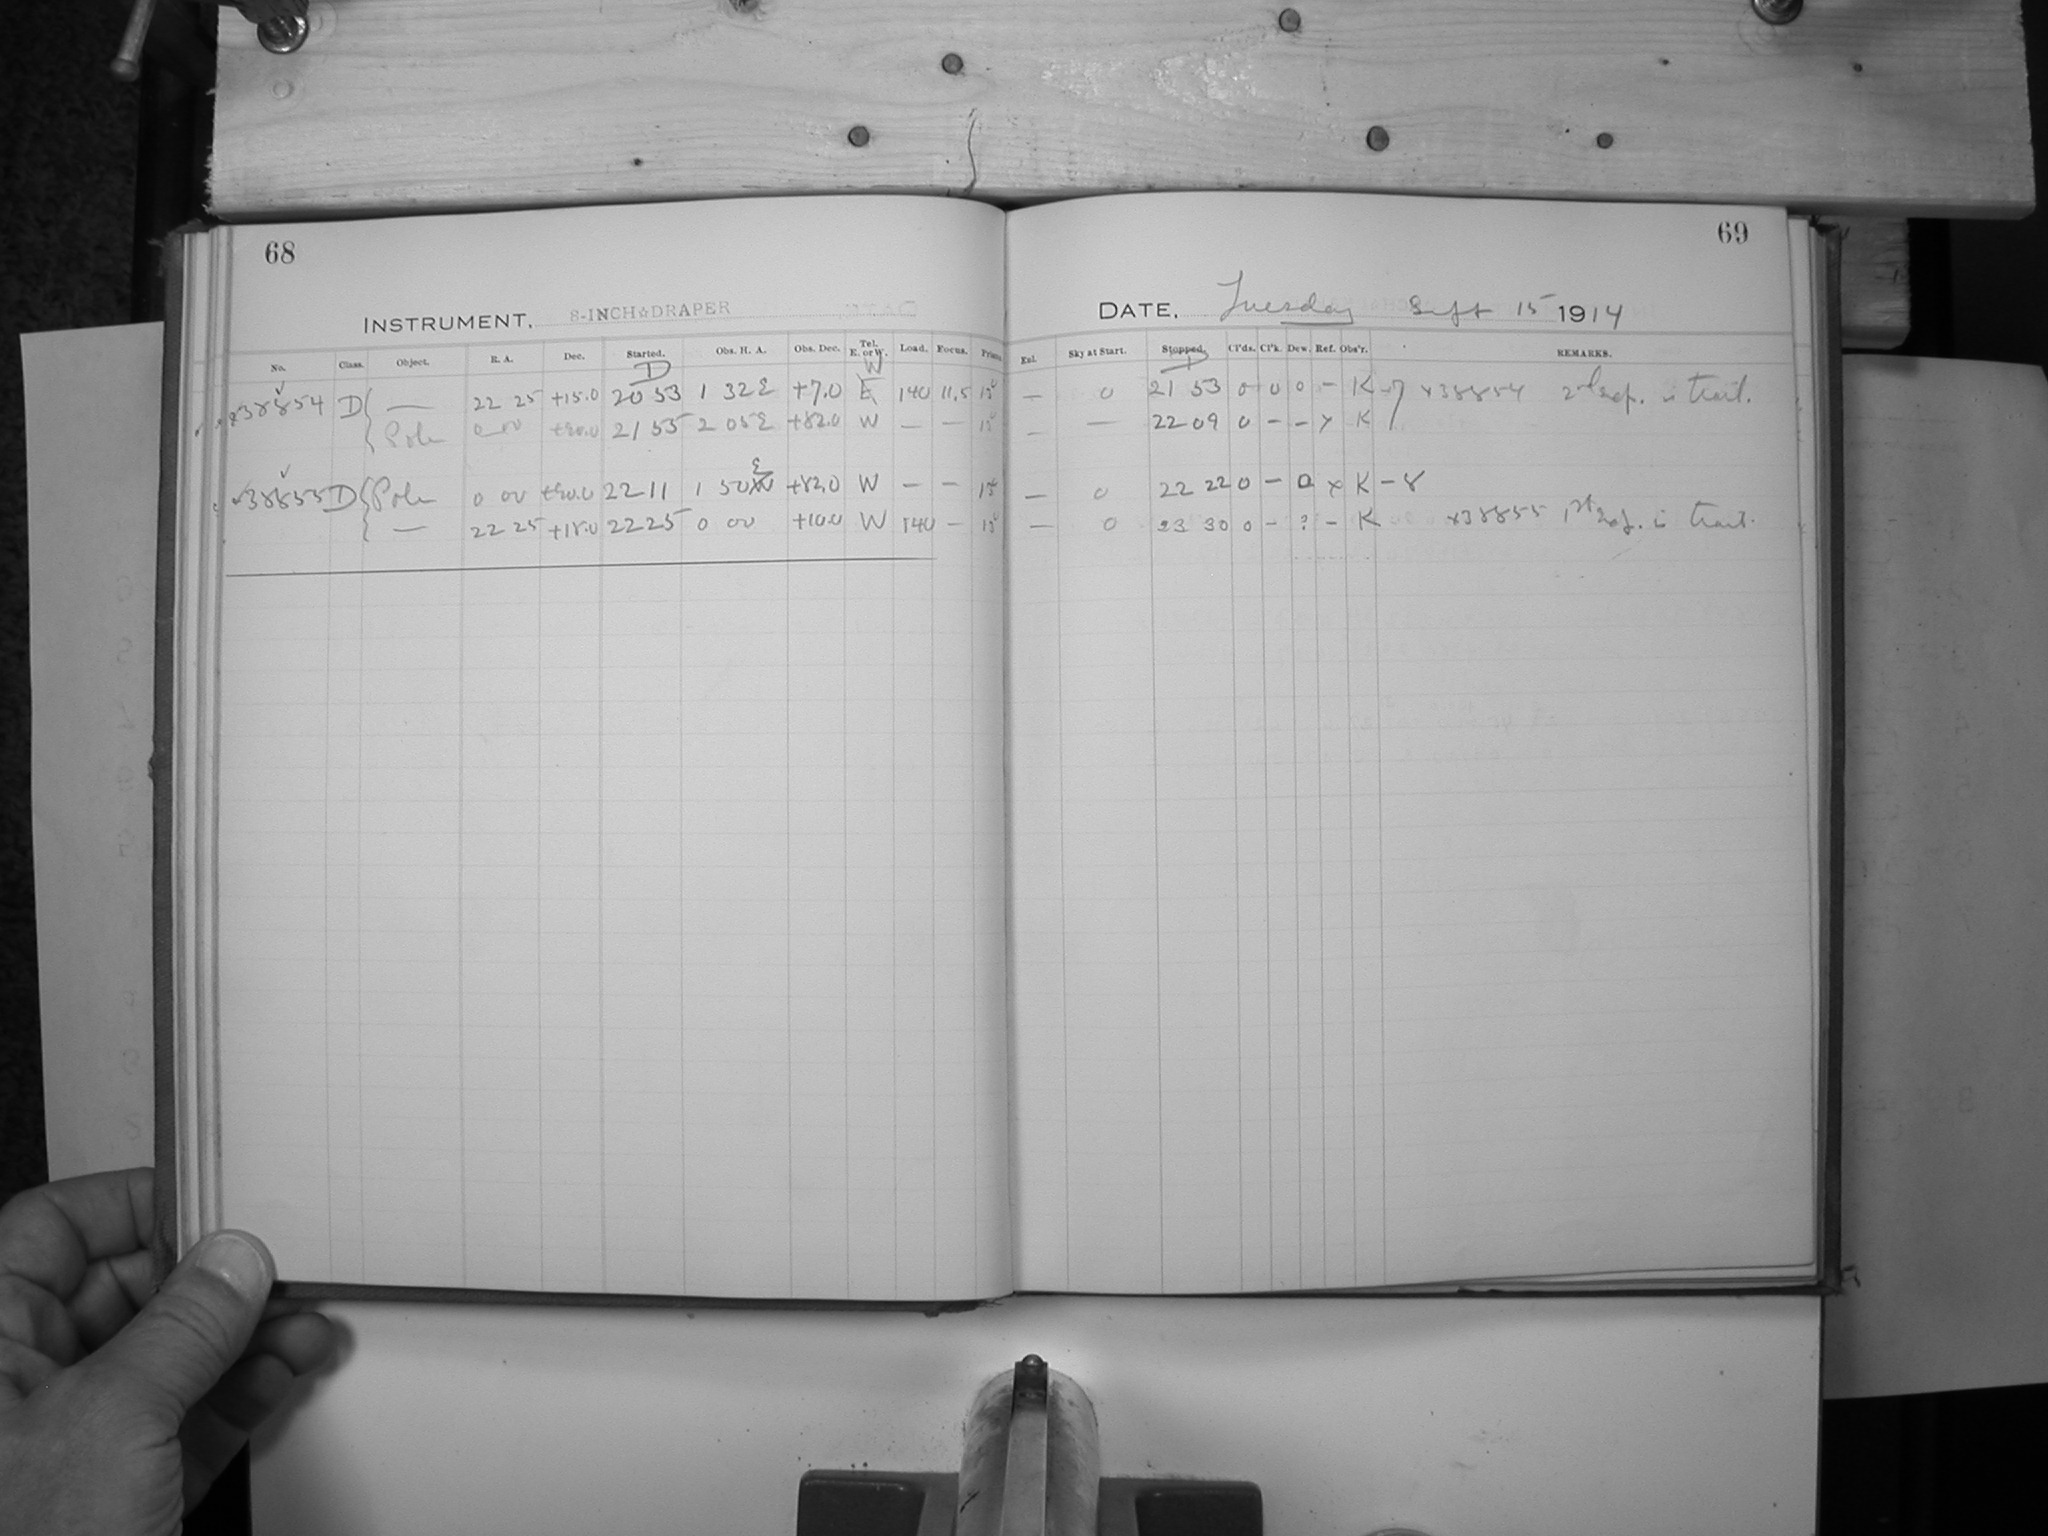 68
INSTRUMENT, 8-INCH☆DRAPER
No. Class. Object. R. A. Dec. Started. Obs. H. A. Obs. Dec. Tel. E. or W. Load. Focus. Prism
D W
38854 D — 22 25 +15.0 20 53 1 32 E +7.0 E 140 11.5 15
Pole 0 00 +90.0 21 55 2 05 E +82.0 W — — 15
E
38855 D Pole 0 00 +90.0 22 11 1 50 W +82.0 W — — 15
— 22 25 +18.0 22 25 0 00 +10.0 W 140 — 15
69
DATE, Tuesday Sept 15 1914
Exl. Sky at Start. Stopped. Cl'ds. Cl'k. Dew. Ref. Obs'r. REMARKS.
— 0 21 53 0 0 0 — K —7 x38854 2nd is trail.
— — 22 09 0 — — x K
— 0 22 22 0 — 0 x K — 8
— 0 23 30 0 — ? — K x38855 1st is trail.